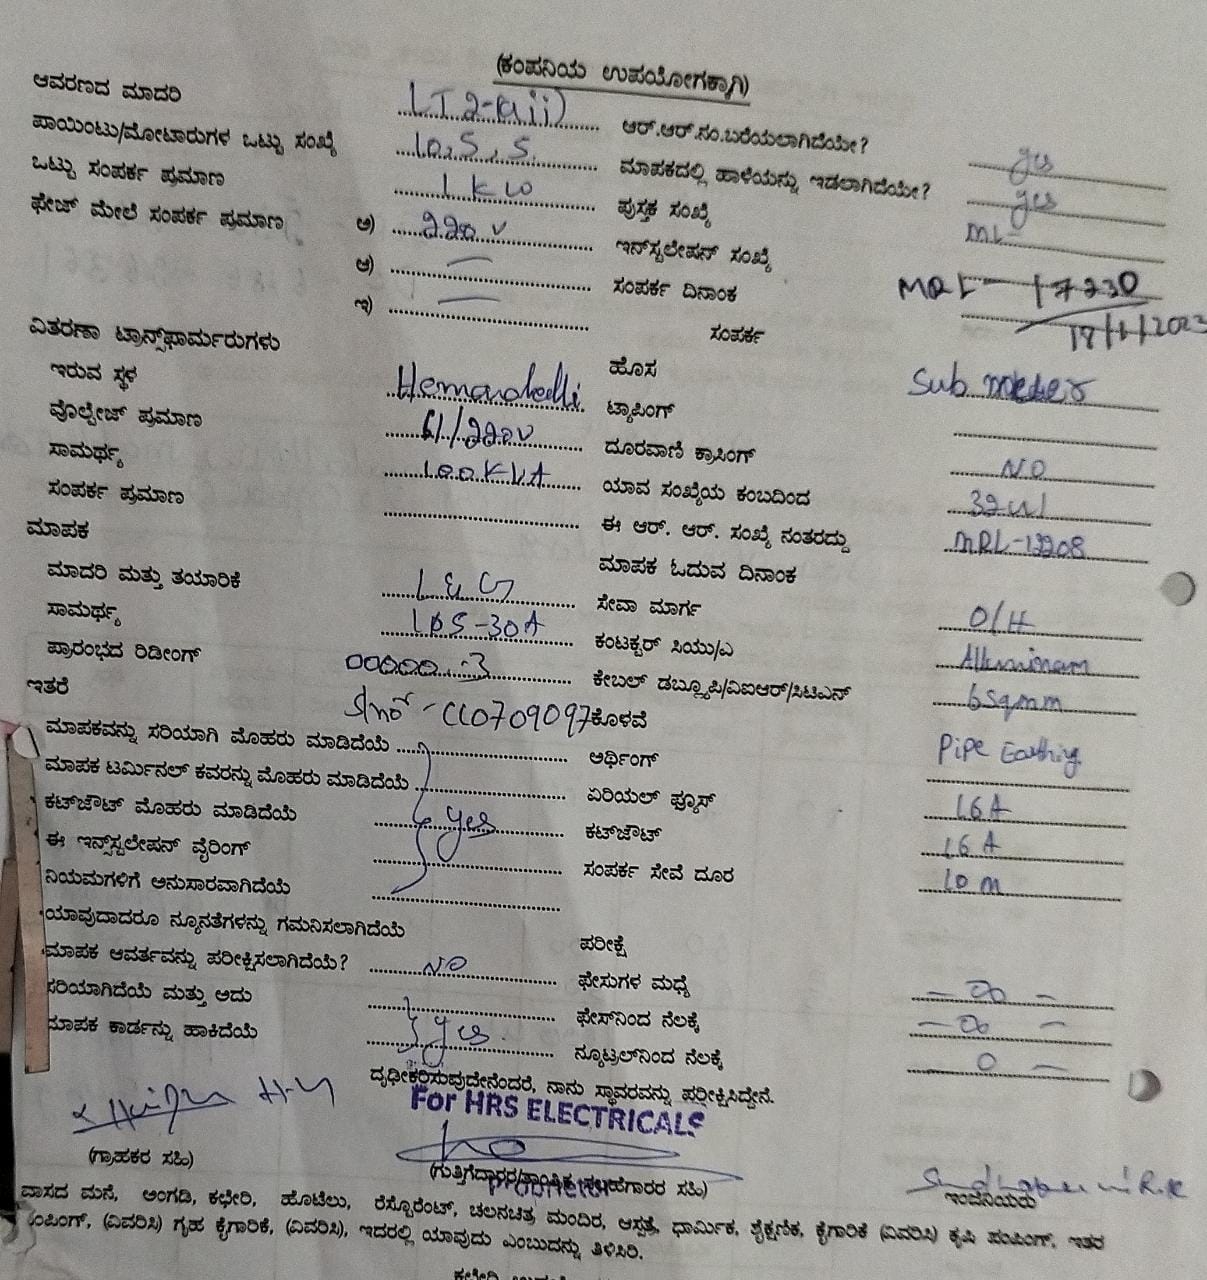 (ಕಂಪನಿಯ ಉಪಯೋಗಕ್ಕಾಗಿ)
ಆವರಣದ ಮಾದರಿ LT 2-a(ii) ಆರ್.ಆರ್.ನಂ.ಬರೆಯಲಾಗಿದೆಯೇ? yes
ಪಾಯಿಂಟು/ಮೋಟಾರುಗಳ ಒಟ್ಟು ಸಂಖ್ಯೆ ಮಾಪಕದಲ್ಲಿ ಹಾಳೆಯನ್ನು ಇಡಲಾಗಿದೆಯೇ? yes
ಒಟ್ಟು ಸಂಪರ್ಕ ಪ್ರಮಾಣ 1 KW ಪುಸ್ತಕ ಸಂಖ್ಯೆ
ಫೇಜ್ ಮೇಲೆ ಸಂಪರ್ಕ ಪ್ರಮಾಣ ಅ) 220 V ಇನ್‌ಸ್ಟಲೇಷನ್ ಸಂಖ್ಯೆ MRL-17230
ಆ) — ಸಂಪರ್ಕ ದಿನಾಂಕ 2023
ಇ) — ಸಂಪರ್ಕ
ವಿತರಣಾ ಟ್ರಾನ್ಸ್‌ಫಾರ್ಮರುಗಳು ಹೊಸ Sub meter
ಇರುವ ಸ್ಥಳ ಟ್ಯಾಪಿಂಗ್
ವೊಲ್ಟೇಜ್ ಪ್ರಮಾಣ ದೂರವಾಣಿ ಕ್ರಾಸಿಂಗ್ NO
ಸಾಮರ್ಥ್ಯ 100 KVA ಯಾವ ಸಂಖ್ಯೆಯ ಕಂಬದಿಂದ
ಸಂಪರ್ಕ ಪ್ರಮಾಣ ಈ ಆರ್. ಆರ್. ಸಂಖ್ಯೆ ನಂತರದ್ದು
ಮಾಪಕ ಮಾಪಕ ಓದುವ ದಿನಾಂಕ
ಮಾದರಿ ಮತ್ತು ತಯಾರಿಕೆ L & G ಸೇವಾ ಮಾರ್ಗ O/H
ಸಾಮರ್ಥ್ಯ ಕಂಟಕ್ಟರ್ ಸಿಯು/ಎ Alluminam
ಪ್ರಾರಂಭದ ರಿಡೀಂಗ್ 00000.3 ಕೇಬಲ್ ಡಬ್ಲ್ಯೂಪಿ/ವಿಐಆರ್/ಸಿಟಿಎಸ್ 6 sqmm
ಇತರೆ Slno - CC0709097 ಕೊಳವೆ
ಮಾಪಕವನ್ನು ಸರಿಯಾಗಿ ಮೊಹರು ಮಾಡಿದೆಯೆ ಅರ್ಥಿಂಗ್ Pipe Earthing
ಮಾಪಕ ಟರ್ಮಿನಲ್ ಕವರನ್ನು ಮೊಹರು ಮಾಡಿದೆಯೆ ಏರಿಯಲ್ ಫ್ಯೂಸ್ 16A
ಕಟ್‌ಔಟ್ ಮೊಹರು ಮಾಡಿದೆಯೆ yes ಕಟ್‌ಔಟ್ 16 A
ಈ ಇನ್ಸ್‌ಸ್ಟಲೇಷನ್ ವೈರಿಂಗ್ ಸಂಪರ್ಕ ಸೇವೆ ದೂರ 10 m
ನಿಯಮಗಳಿಗೆ ಅನುಸಾರವಾಗಿದೆಯೆ
ಯಾವುದಾದರೂ ನ್ಯೂನತೆಗಳನ್ನು ಗಮನಿಸಲಾಗಿದೆಯೆ ಪರೀಕ್ಷೆ
ಮಾಪಕ ಆವರ್ತವನ್ನು ಪರೀಕ್ಷಿಸಲಾಗಿದೆಯೆ? NO ಫೇಸುಗಳ ಮಧ್ಯೆ — ∞ —
ಸರಿಯಾಗಿದೆಯೆ ಮತ್ತು ಅದು ಫೇಸ್‌ನಿಂದ ನೆಲಕ್ಕೆ — ∞ —
ಮಾಪಕ ಕಾರ್ಡನ್ನು ಹಾಕಿದೆಯೆ yes ನ್ಯೂಟ್ರಲ್‌ನಿಂದ ನೆಲಕ್ಕೆ 0 —
ದೃಢೀಕರಿಸುವುದೇನೆಂದರೆ, ನಾನು ಸ್ಥಾವರವನ್ನು ಪರೀಕ್ಷಿಸಿದ್ದೇನೆ.
For HRS ELECTRICALS
(ಗ್ರಾಹಕರ ಸಹಿ) (ಗುತ್ತಿಗೆದಾರರ/ತಾಂತ್ರಿಕ ಸಲಹೆಗಾರರ ಸಹಿ) ಇಂಜಿನಿಯರು
ವಾಸದ ಮನೆ, ಅಂಗಡಿ, ಕಛೇರಿ, ಹೊಟೆಲು, ರೆಸ್ಟೋರೆಂಟ್, ಚಲನಚಿತ್ರ ಮಂದಿರ, ಆಸ್ಪತ್ರೆ, ಧಾರ್ಮಿಕ, ಶೈಕ್ಷಣಿಕ, ಕೈಗಾರಿಕೆ (ವಿವರಿಸಿ) ಕೃಷಿ ಪಂಪಿಂಗ್, ಇತರ
ಪಂಪಿಂಗ್, (ವಿವರಿಸಿ) ಗೃಹ ಕೈಗಾರಿಕೆ, (ವಿವರಿಸಿ), ಇದರಲ್ಲಿ ಯಾವುದು ಎಂಬುದನ್ನು ತಿಳಿಸಿರಿ.